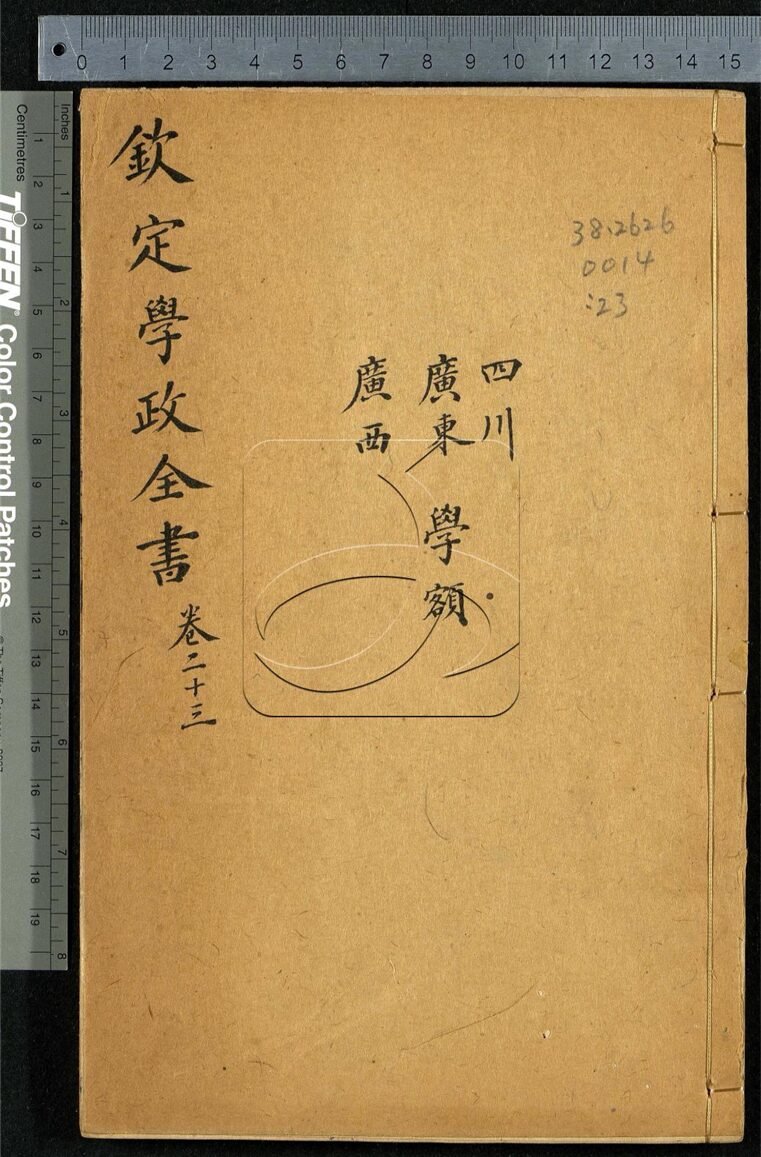 0 1 2 3 4 5 6 7 8 9 10 11 12 13 14 15
Inches
Centimetres
1 2 3 4 5 6 7 8
1 2 3 4 5 6 7 8 9 10 11 12 13 14 15 16 17 18 19
TIFFEN® Color Control Patches
38.2626
0014
:23
四川
廣東
廣西
學額
欽定學政全書
卷二十三